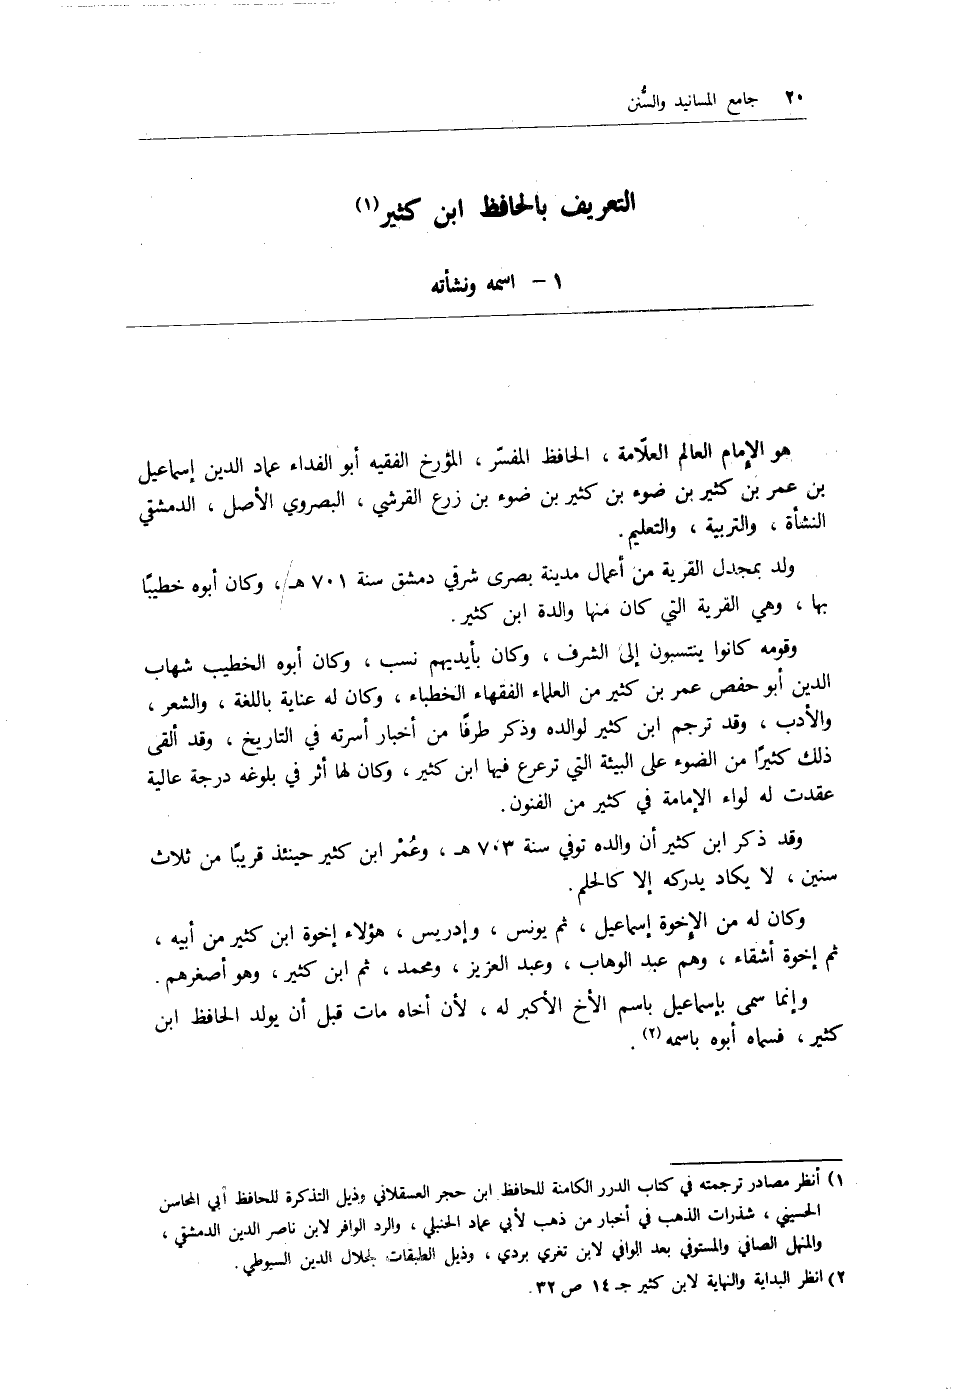 ٢٠ جامع المسانيد والسُّنن
التعريف بالحافظ ابن كثير(١)
١ - اسمه ونشأته
هو الإمام العالم العلّامة ، الحافظ المفسّر ، المؤرخ الفقيه أبو الفداء عماد الدين إسماعيل
بن عمر بن كثير بن ضوء بن كثير بن ضوء بن زرع القرشي ، البصروي الأصل ، الدمشقي
النشأة ، والتربية ، والتعليم.
ولد بمجدل القرية من أعمال مدينة بصرى شرقي دمشق سنة ٧٠١ هـ ، وكان أبوه خطيبًا
بها ، وهي القرية التي كان منها والدة ابن كثير.
وقومه كانوا ينتسبون إلى الشرف ، وكان بأيديهم نسب ، وكان أبوه الخطيب شهاب
الدين أبو حفص عمر بن كثير من العلماء الفقهاء الخطباء ، وكان له عناية باللغة ، والشعر ،
والأدب ، وقد ترجم ابن كثير لوالده وذكر طرفًا من أخبار أسرته في التاريخ ، وقد ألقى
ذلك كثيرًا من الضوء على البيئة التي ترعرع فيها ابن كثير ، وكان لها أثر في بلوغه درجة عالية
عقدت له لواء الإمامة في كثير من الفنون.
وقد ذكر ابن كثير أن والده توفي سنة ٧٠٣ هـ ، وعُمْر ابن كثير حينئذ قريبًا من ثلاث
سنين ، لا يكاد يدركه إلا كالحلم.
وكان له من الإخوة إسماعيل ، ثم يونس ، وإدريس ، هؤلاء إخوة ابن كثير من أبيه ،
ثم إخوة أشقاء ، وهم عبد الوهاب ، وعبد العزيز ، ومحمد ، ثم ابن كثير ، وهو أصغرهم .
وإنما سمى بإسماعيل باسم الأخ الأكبر له ، لأن أخاه مات قبل أن يولد الحافظ ابن
كثير ، فسماه أبوه باسمه(٢) .
١) أنظر مصادر ترجمته في كتاب الدرر الكامنة للحافظ ابن حجر العسقلاني وذيل التذكرة للحافظ أبي المحاسن
الحسيني ، شذرات الذهب في أخبار من ذهب لأبي عماد الحنبلي ، والرد الوافر لابن ناصر الدين الدمشقي ،
والمنهل الصافي والمستوفي بعد الوافي لابن تغري بردي ، وذيل الطبقات لجلال الدين السيوطي.
٢) انظر البداية والنهاية لابن كثير جـ ١٤ ص ٣٢.